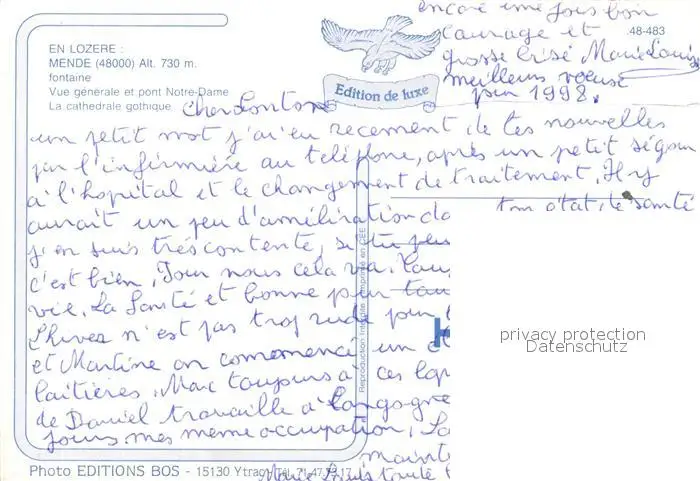 encore une fois bon
courage et
grosse bise Marie Louise
meilleurs voeuse
pour 1998.
48-483
EN LOZERE :
MENDE (48000) Alt. 730 m.
fontaine
Vue générale et pont Notre-Dame
La cathedrale gothique
Edition de luxe
Cher Tonton
un petit mot j'ai eu recement de tes nouvelles
par l'infirmière au teléfone, après un petit séjour
à l'hopital et le changement de traitement. Il y
aurait un peu d'amélération da ton état de santé
j'en suis trés contente, si tu peu
c'est bien. Pour nous cela va.
vie. La Santé et bonne pour tou
L'hiver n'est pas trop rude pour
et Martine on commencé un
laitières, Marc toujours a ces
de Daniel travaille à Langogne
jours mes meme occupation,
maint
Marie Louis toute
Reproduction interdite - Imprimé en CEE
privacy protection
Datenschutz
Photo EDITIONS BOS - 15130 Ytrac Tél. 71.47